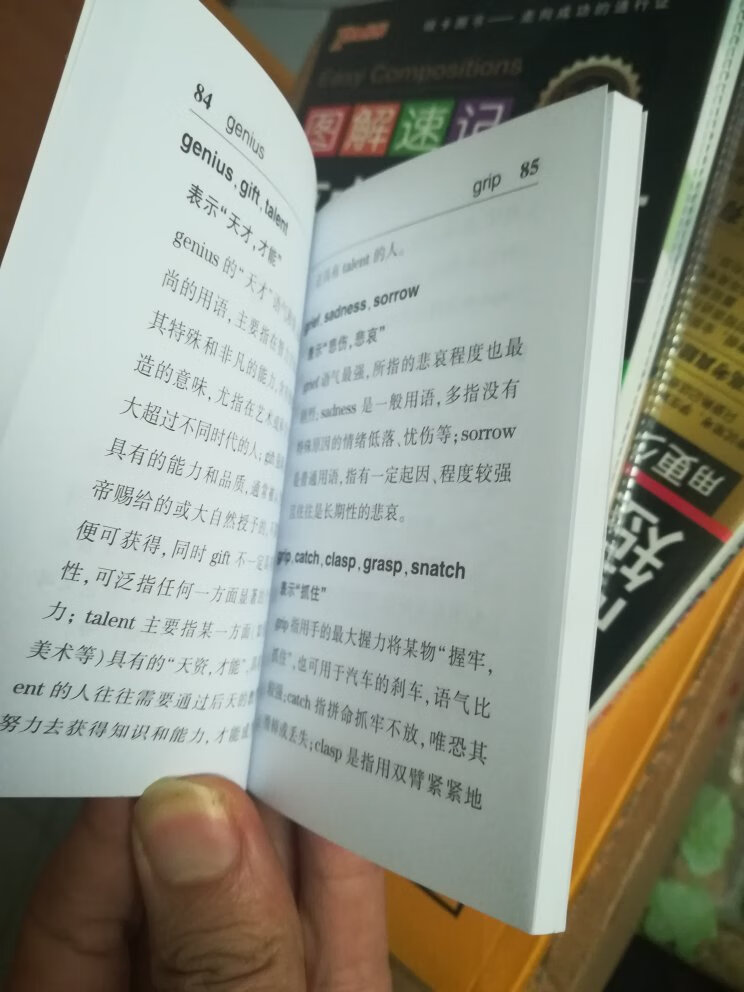 84 genius
genius, gift, talent
表示“天才,才能”
genius 的“天才”语气
尚的用语,主要指在
其特殊和非凡的能力,
造的意味,尤指在艺术或
大超过不同时代的人;
具有的能力和品质,通常
帝赐给的或大自然授予的,
便可获得,同时 gift 不一定
性,可泛指任何一方面显著的
力; talent 主要指某一方面(
美术等)具有的“天资,才能”,
ent 的人往往需要通过后天的
努力去获得知识和能力,才能
grip 85
talent 的人。
grief, sadness, sorrow
表示“悲伤,悲哀”
grief 语气最强,所指的悲哀程度也最
sadness 是一般用语,多指没有
特殊原因的情绪低落、忧伤等; sorrow
是普通用语,指有一定起因、程度较强
往往是长期性的悲哀。
grip, catch, clasp, grasp, snatch
表示“抓住”
grip 指用手的最大握力将某物“握牢,
抓住”,也可用于汽车的刹车,语气比
较强; catch 指拼命抓牢不放,唯恐其
或丢失; clasp 是指用双臂紧紧地
图书——走向成功的通行证
Easy Compositions
图解速记
用更